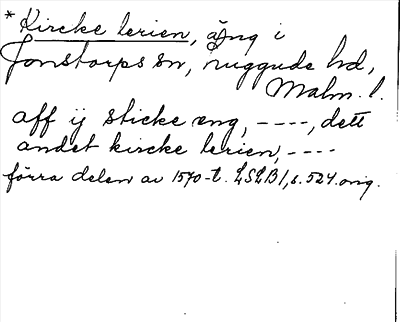 * Kircke lerien, äng i
Jonstorps sn, Luggude hd,
Malm. l.
aff ij sticke eng, ----, dett
andet kircke lerien, ----
förra delen av 1570-t. LSLB1, s. 524. orig.